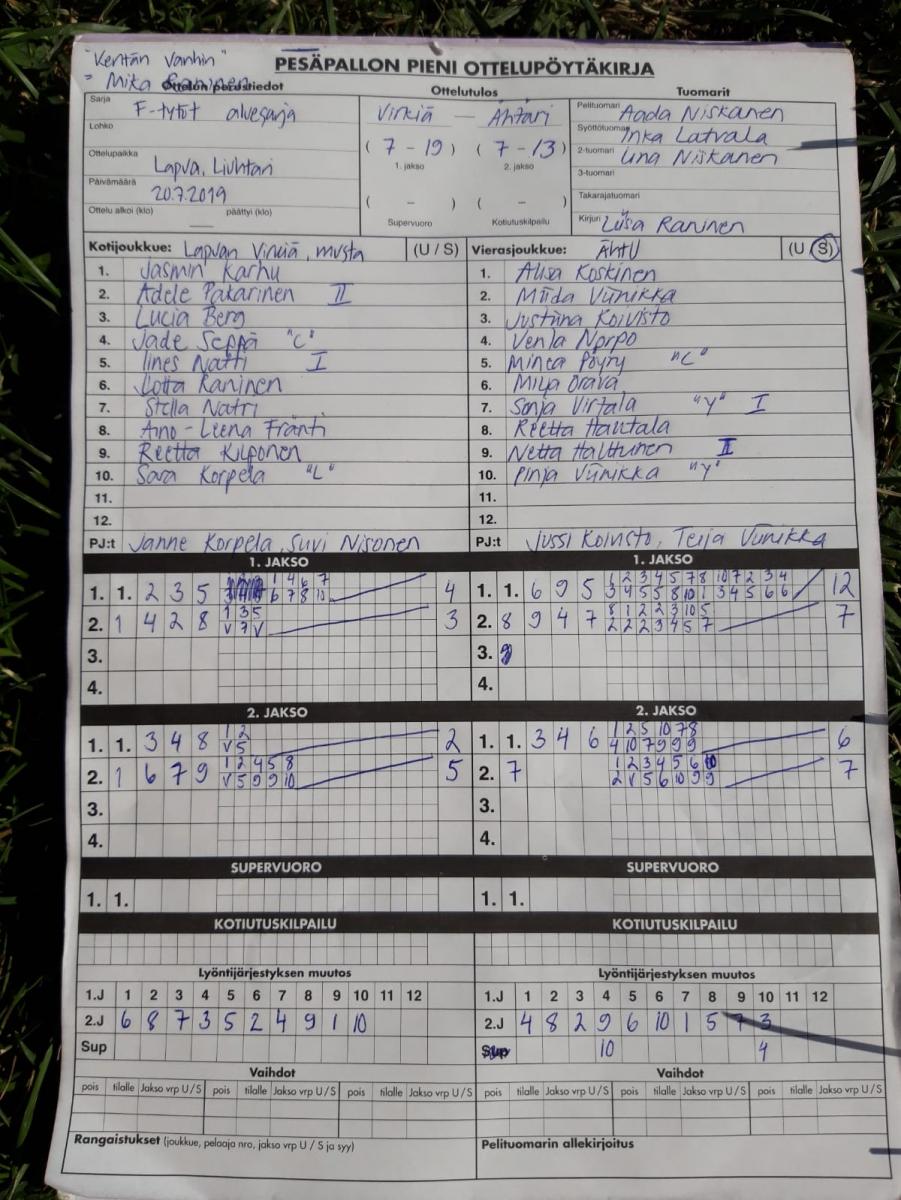 "Kentän Vanhin"
= Mika Raninen
PESÄPALLON PIENI OTTELUPÖYTÄKIRJA
Ottelun perustiedot Ottelutulos Tuomarit
Sarja F-tytöt aluesarja
Lohko
Ottelupaikka Lapua, Liuhtari
Päivämäärä 20.7.2019
Ottelu alkoi (klo) — päättyi (klo)
Virkiä — Ähtäri
( 7 - 19 ) ( 7 - 13 )
1. jakso 2. jakso
( - ) ( - )
Supervuoro Kotiutuskilpailu
Pelituomari Aada Niskanen
Syöttötuomari Inka Latvala
2-tuomari Una Niskanen
3-tuomari
Takarajatuomari
Kirjuri Liisa Raninen
Kotijoukkue: Lapuan Virkiä, musta (U / S)
1. Jasmin Karhu
2. Adele Pakarinen II
3. Lucia Berg
4. Jade Seppä "C"
5. Iines Natri I
6. Lotta Raninen
7. Stella Natri
8. Aino-Leena Främti
9. Reetta Kilponen
10. Sara Korpela "L"
11.
12.
PJ:t Janne Korpela, Suvi Nisonen
Vierasjoukkue: ÄhtU (U / S)
1. Alisa Koskinen
2. Miida Viinikka
3. Justiina Koivisto
4. Venla Norpo
5. Minea Pöyry "C"
6. Milja Orava
7. Sonja Virtala "y" I
8. Reetta Hautala
9. Netta Halttunen II
10. Pinja Viinikka "y"
11.
12.
PJ:t Jussi Koivisto, Teija Viinikka
1. JAKSO
1. 1. 2 3 5 1 4 6 7 4
6 7 8 10
2. 1 4 2 8 1 3 5 3
V 7 V
3.
4.
1. JAKSO
1. 1. 6 9 5 1 2 3 4 5 7 8 10 7 2 3 4 12
3 4 5 5 8 10 1 3 4 5 6 6
2. 8 9 4 7 8 1 2 2 3 10 5 7
2 2 2 3 4 5 7
3.
4.
2. JAKSO
1. 1. 3 4 8 1 2 2
V 5
2. 1 6 7 9 1 2 4 5 8 5
V 5 9 9 10
3.
4.
2. JAKSO
1. 1. 3 4 6 1 2 5 10 7 8 6
4 10 7 9 9 9
2. 7 1 2 3 4 5 6 10 7
2 V 5 6 10 9 9
3.
4.
SUPERVUORO
1. 1.
SUPERVUORO
1. 1.
KOTIUTUSKILPAILU
KOTIUTUSKILPAILU
Lyöntijärjestyksen muutos
1.J 1 2 3 4 5 6 7 8 9 10 11 12
2.J 6 8 7 3 5 2 4 9 1 10
Sup
Lyöntijärjestyksen muutos
1.J 1 2 3 4 5 6 7 8 9 10 11 12
2.J 4 8 2 9 6 10 1 5 7 3
Sup 10 4
Vaihdot
pois tilalle Jakso vrp U / S pois tilalle Jakso vrp U / S pois tilalle Jakso vrp U / S
Vaihdot
pois tilalle Jakso vrp U / S pois tilalle Jakso vrp U / S pois tilalle Jakso vrp U / S
Rangaistukset (joukkue, pelaaja nro, jakso vrp U / S ja syy)
Pelituomarin allekirjoitus